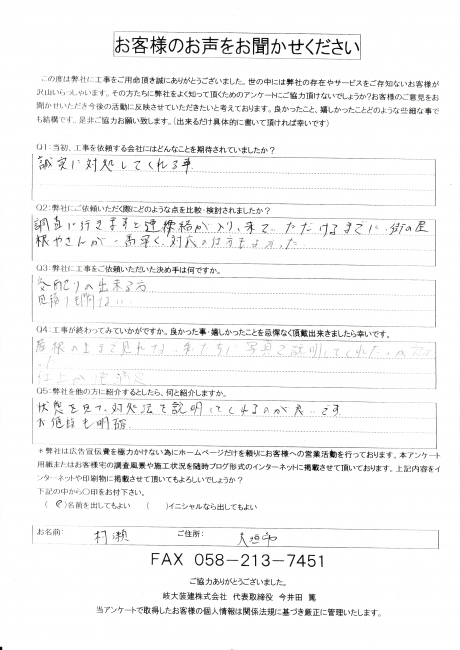 お客様のお声をお聞かせください
この度は弊社に工事をご用命頂き誠にありがとうございました。世の中には弊社の存在やサービスをご存知ないお客様が
沢山いらっしゃいます。その方たちに弊社をよく知って頂くためのアンケートにご協力頂けないでしょうか?お客様のご意見をお
聞かせいただき今後の活動に反映させていただきたいと考えております。良かったこと、嬉しかったことどのような些細な事で
も結構です、是非ご協力お願い致します。(出来るだけ具体的に書いて頂ければ幸いです)
Q1:当初、工事を依頼する会社にはどんなことを期待されていましたか?
誠実に対処してくれる事
Q2:弊社にご依頼いただく際にどのような点を比較・検討されましたか?
調査に行きますと連絡が入り、来ていただけるまでに、街の屋
根やさんが一番早く、対応の仕方もよかった
Q3:弊社に工事をご依頼いただいた決め手は何ですか。
気配りの出来る方
見積りも
Q4:工事が終わってみていかがですか。良かった事・嬉しかったことを忌憚なく頂戴出来きましたら幸いです。
屋根の上まで見れない私たちに写真で説明してくれた
仕上がりも満足
Q5:弊社を他の方に紹介するとしたら、何と紹介しますか。
状態を見て、対処法を説明してくれるのが良いです
お値段も明確
*弊社は広告宣伝費を極力かけない為にホームページだけを頼りにお客様への営業活動を行っております。本アンケート
用紙またはお客様宅の調査風景や施工状況を随時ブログ形式のインターネットに掲載させて頂いております。上記内容をイ
ンターネットや印刷物に掲載させて頂いてもよろしいでしょうか?
下記の中から〇印をお付下さい。
( )名前を出してもよい ( )イニシャルなら出してもよい
お名前: 村瀬 ご住所: 大垣市
FAX 058-213-7451
ご協力ありがとうございました。
岐大装建株式会社 代表取締役 今井田 篤
当アンケートで取得したお客様の個人情報は関係法規に基づき厳正に管理いたします。